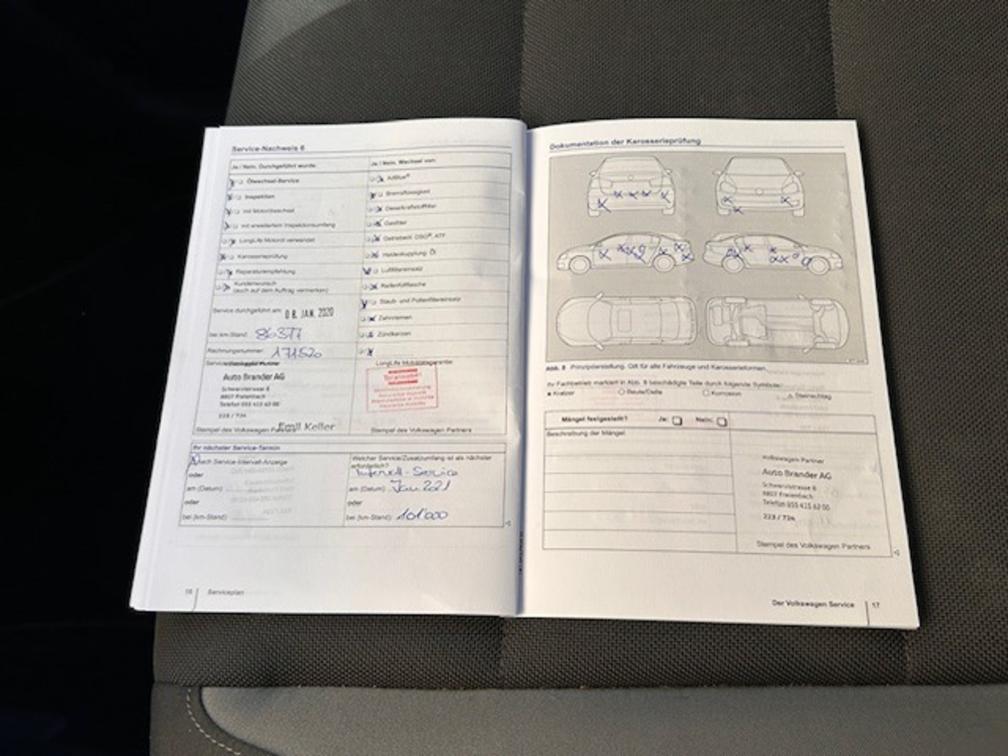 Service-Nachweis 6
Ja / Nein, Durchgeführt wurde:
Ölwechsel-Service
Inspektion
mit Motorölwechsel
mit erweitertem Inspektionsumfang
LongLife Motoröl verwendet
Karosserieprüfung
Reparaturempfehlung
Kundenwunsch
(auch auf dem Auftrag vermerken)
Service durchgeführt am: 08. JAN. 2020
bei km-Stand: 86377
Rechnungsnummer: 171520
Auto Brander AG
Schwerzistrasse 6
8807 Freienbach
Telefon 055 415 62 00
223 / 724
Stempel des Volkswagen Partners
Emil Keller
Ja / Nein, Wechsel von:
AdBlue®
Bremsflüssigkeit
Dieselkraftstofffilter
Gasfilter
Getriebeöl: DSG®, ATF
Haldexkupplung Öl
Luftfiltereinsatz
Reifenfüllflasche
Staub- und Pollenfiltereinsatz
Zahnriemen
Zündkerzen
LongLife Mobilitätsgarantie
Stempel des Volkswagen Partners
Ihr nächster Service-Termin
nach Service-Intervall-Anzeige
oder
am (Datum):
oder
bei (km-Stand):
Welcher Service/Zusatzumfang ist als nächster
erforderlich?
Intervall-Service
am (Datum): Jan. 2021
bei (km-Stand): 101'000
16 Serviceplan
Dokumentation der Karosserieprüfung
Abb. 8 Prinzipdarstellung. Gilt für alle Fahrzeuge und Karosserieformen.
Ihr Fachbetrieb markiert in Abb. 8 beschädigte Teile durch folgende Symbole:
x Kratzer Beule/Delle Korrosion Steinschlag
Mängel festgestellt? Ja: Nein:
Beschreibung der Mängel:
Volkswagen Partner
Auto Brander AG
Schwerzistrasse 6
8807 Freienbach
Telefon 055 415 62 00
223 / 724
Stempel des Volkswagen Partners
Der Volkswagen Service 17